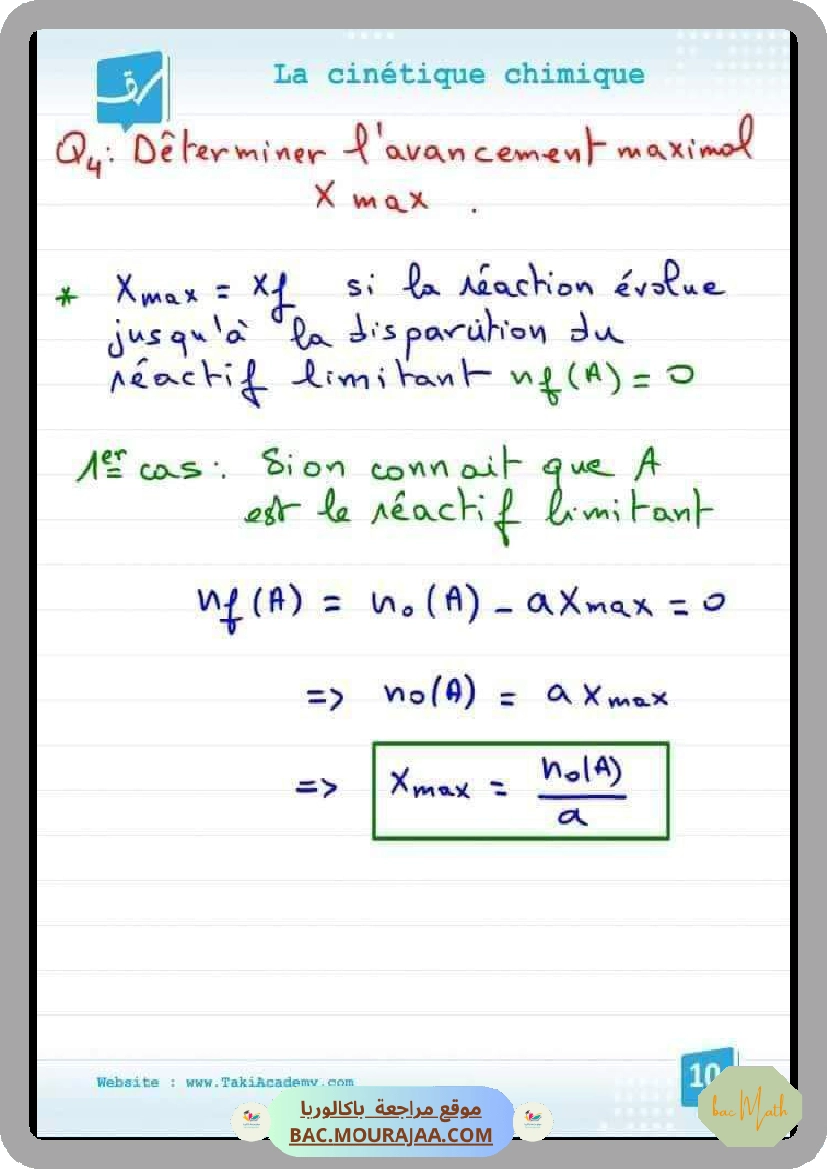 La cinétique chimique
Q4: Déterminer l'avancement maximal
X max .
* Xmax = xf si la réaction évolue
jusqu'à la disparution du
réactif limitant nf(A) = 0
1er cas : Si on connait que A
est le réactif limitant
nf(A) = no(A) - aXmax = 0
=> no(A) = a xmax
=> Xmax = no(A)/a
Website : www.TakiAcademy.com
10
bacMath
موقع مراجعة باكالوريا
BAC.MOURAJAA.COM